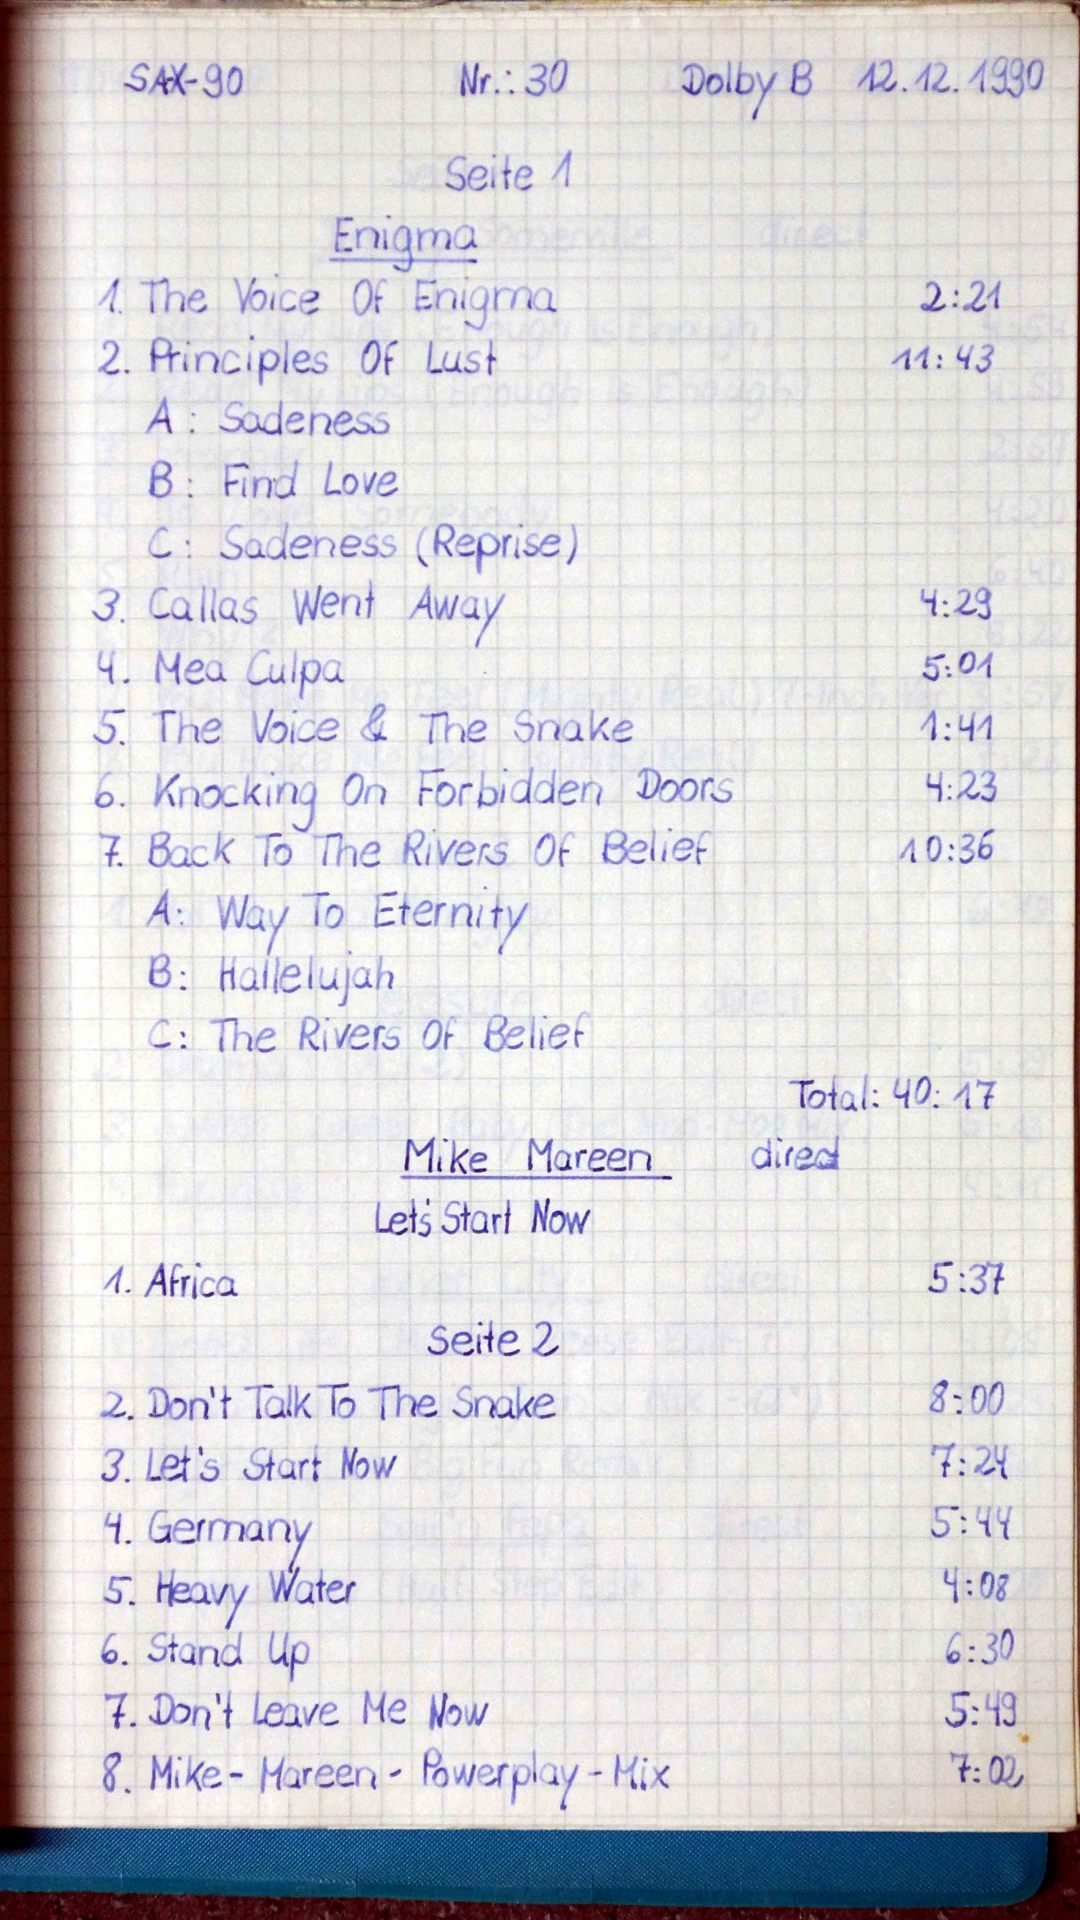 SAX-90 Nr.: 30 Dolby B 12.12.1990
Seite 1
Enigma
1. The Voice Of Enigma 2:21
2. Principles Of Lust 11:43
A: Sadeness
B: Find Love
C: Sadeness (Reprise)
3. Callas Went Away 4:29
4. Mea Culpa 5:01
5. The Voice & The Snake 1:41
6. Knocking On Forbidden Doors 4:23
7. Back To The Rivers Of Belief 10:36
A: Way To Eternity
B: Hallelujah
C: The Rivers Of Belief
Total: 40:17
Mike Mareen direct
Let's Start Now
1. Africa 5:37
Seite 2
2. Don't Talk To The Snake 8:00
3. Let's Start Now 7:24
4. Germany 5:44
5. Heavy Water 4:08
6. Stand Up 6:30
7. Don't Leave Me Now 5:49
8. Mike-Mareen-Powerplay-Mix 7:02